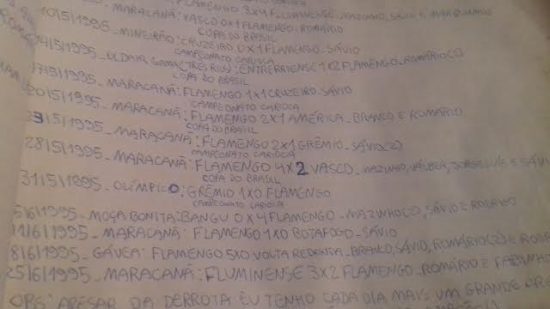 MARACANÃ: FLAMENGO 3X4 FLUMINENSE. MAZINHO, SÁVIO E
MARACANÃ: VASCO 0X1 FLAMENGO. ROMÁRIO
COPA DO BRASIL
10/5/1995 - MINEIRÃO: CRUZEIRO 0X1 FLAMENGO. SÁVIO
CAMPEONATO CARIOCA
14/5/1995 - ENTRERRIENSE 1X2 FLAMENGO. ROMÁRIO(2)
COPA DO BRASIL
17/5/1995 - MARACANÃ: FLAMENGO 1X1 CRUZEIRO. SÁVIO
CAMPEONATO CARIOCA
20/5/1995 - MARACANÃ: FLAMENGO 2X1 AMÉRICA. BRANCO E ROMÁRIO
COPA DO BRASIL
23/5/1995 - MARACANÃ: FLAMENGO 2X1 GRÊMIO. SÁVIO(2)
CAMPEONATO CARIOCA
28/5/1995 - MARACANÃ: FLAMENGO 4X2 VASCO. MAZINHO, SÁVIO
COPA DO BRASIL
31/5/1995 - OLÍMPICO: GRÊMIO 1X0 FLAMENGO
CAMPEONATO CARIOCA
5/6/1995 - MOÇA BONITA: BANGU 0X4 FLAMENGO - MAZINHO(2), SÁVIO E
11/6/1995 - MARACANÃ: FLAMENGO 1X0 BOTAFOGO - SÁVIO
18/6/1995 - GÁVEA: FLAMENGO 5X0 VOLTA REDONDA - BRANCO, SÁVIO, ROMÁRIO(2) E
25/6/1995 - MARACANÃ: FLUMINENSE 3X2 FLAMENGO. ROMÁRIO E FABINHO
OBS: APESAR DA DERROTA EU TENHO CADA DIA MAIS UM GRANDE